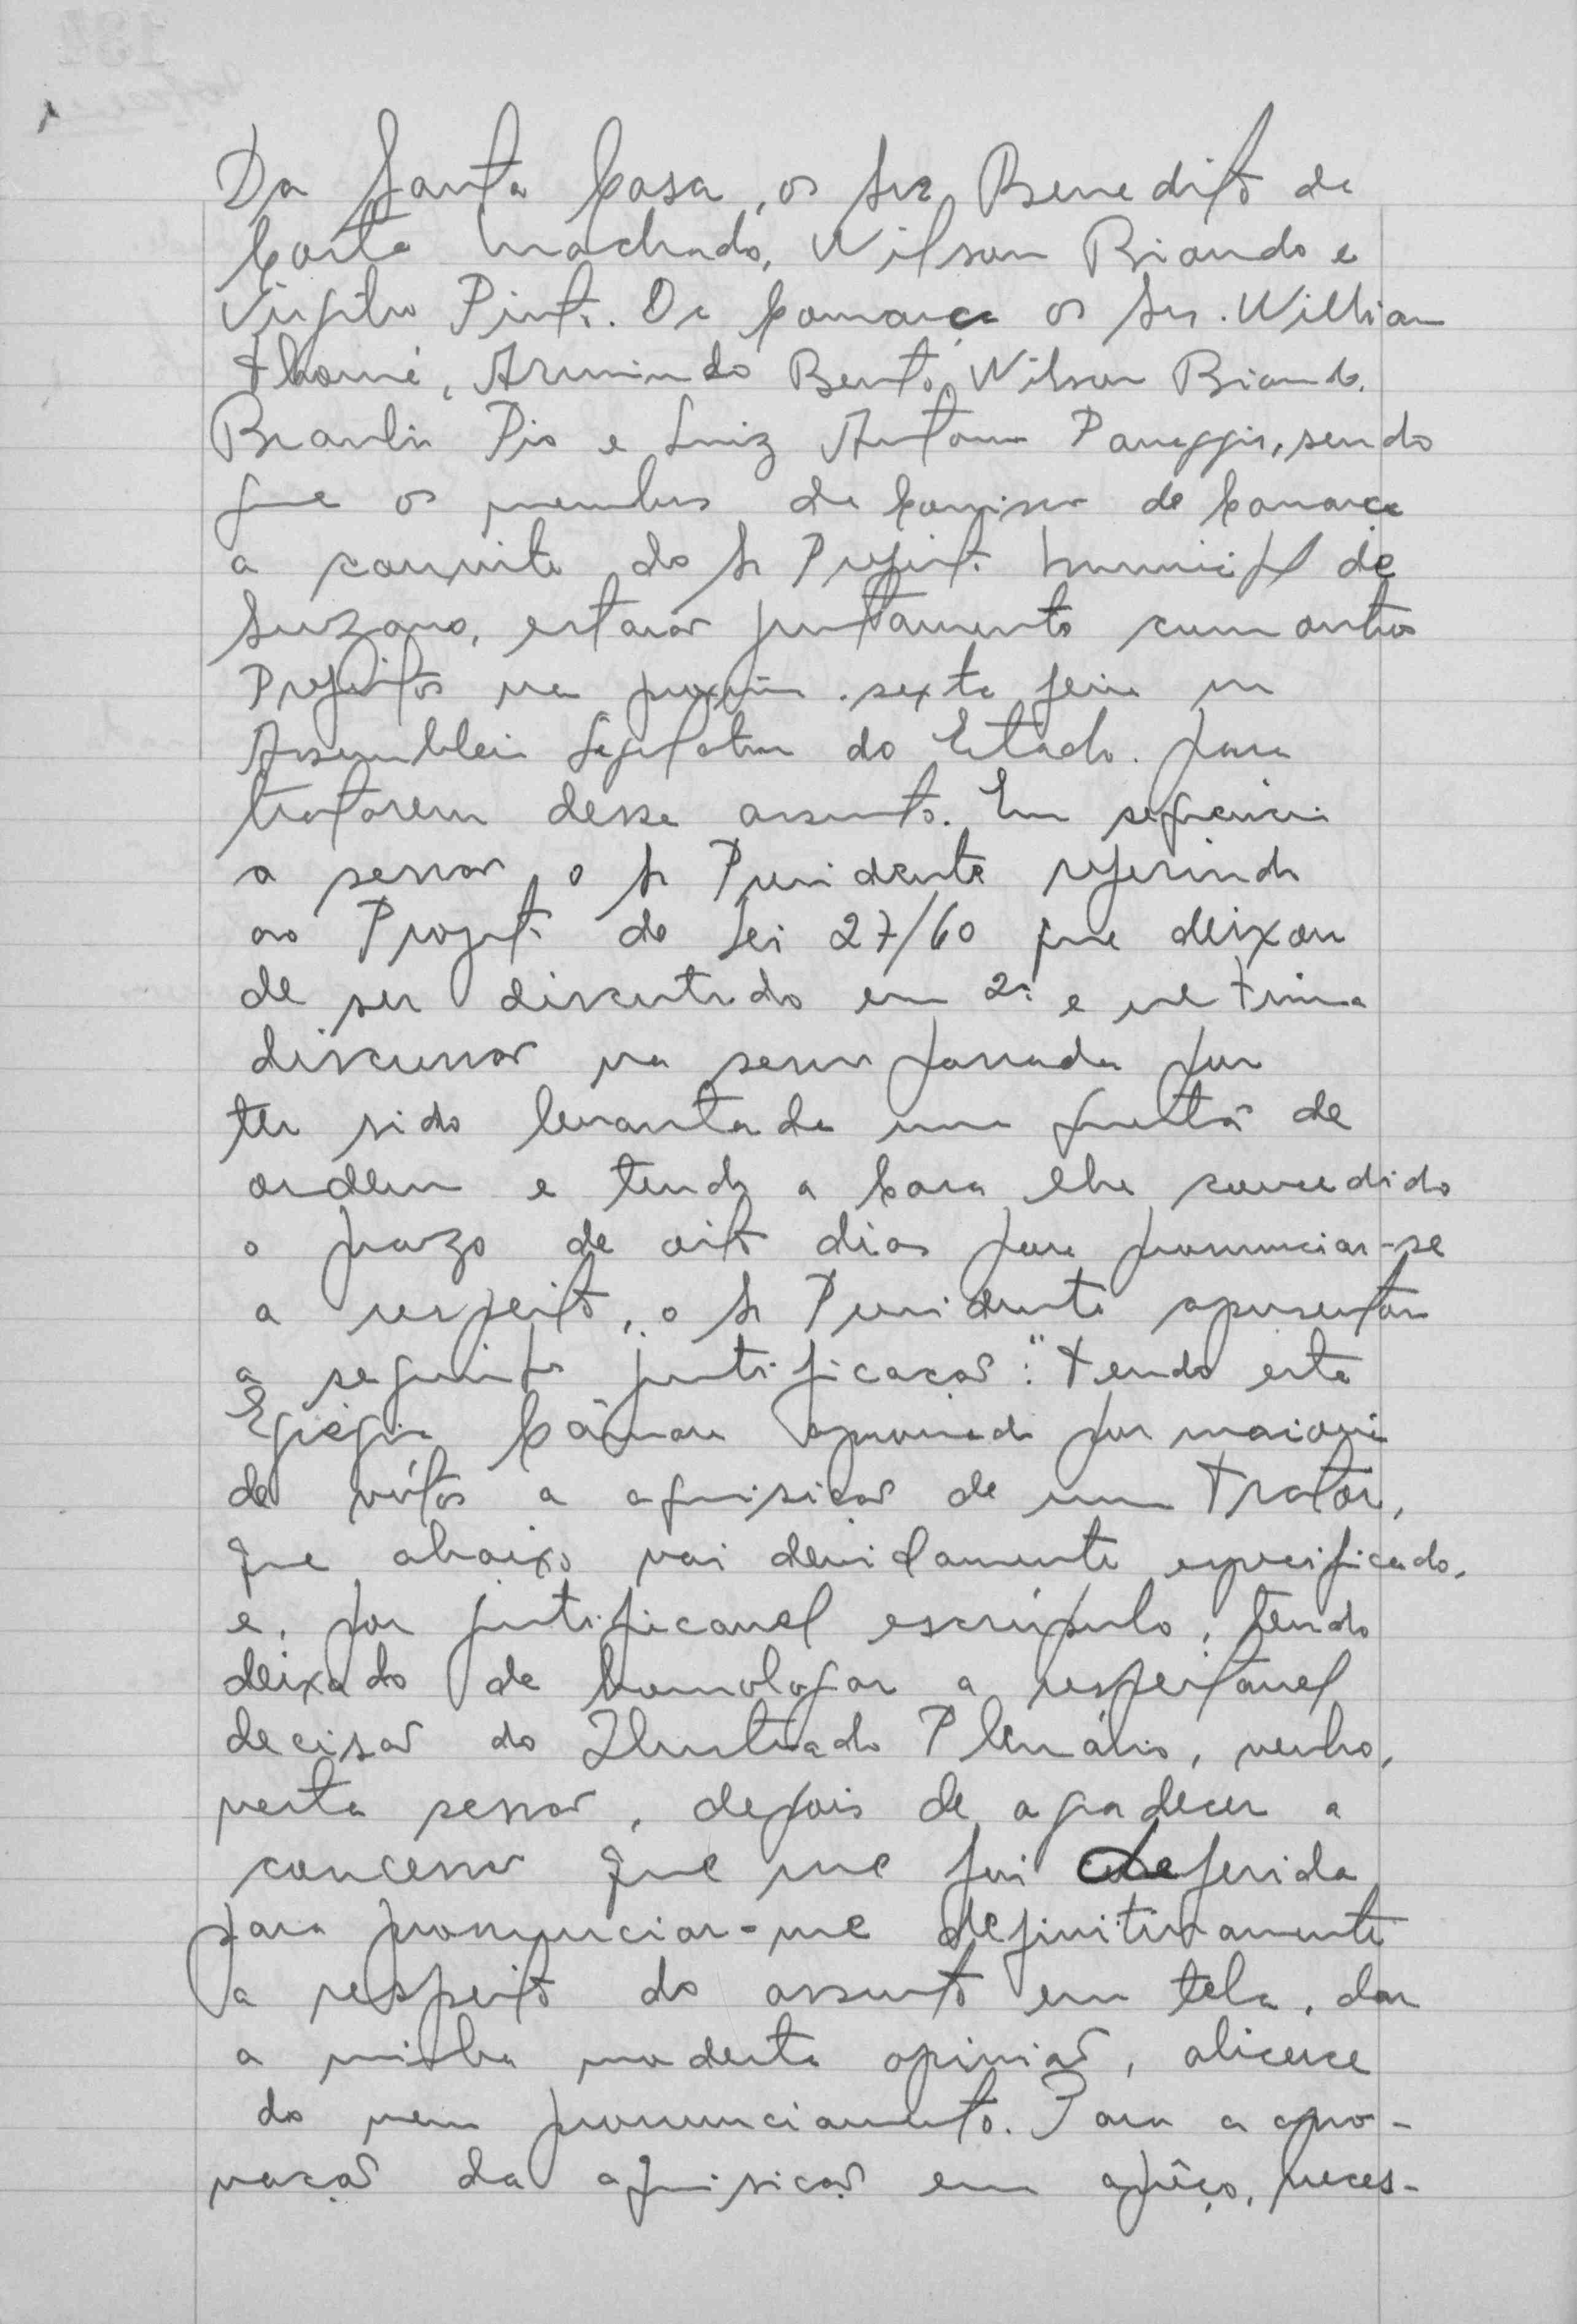 Da Santa Casa, os Srs Benedito da
Costa Machado, Wilson Biando e
Virgilio Pinto. Da Comarca os Srs. Willian
Thomé, Armindo Bento, Wilson Biando,
Braulio Pio e Luiz Antonio, sendo
que os membros da Comissão de Comarca
a convite do Sr Prefeito Municipal de
Suzano, estarão juntamente com outros
Prefeitos na proxima sexta feira na
Assembleia Legislativa do Estado. para
tratarem desse assunto. Em sequencia
a sessão, o Sr Presidente referindo
ao Projeto de Lei 27/60 que deixou
de ser discutido em 2ª e ultima
discussão na sessão passada por
ter sido levantada uma questão de
ordem e tendo a Casa lhe concedido
o prazo de oito dias para pronunciar-se
a respeito, o Sr Presidente apresentou
a seguinte justificação: "Tendo esta
Egrégia Câmara aprovado por maioria
de vótos a aquisição de um Trator,
que abaixo vai devidamente especificado,
e, por justificavel escrúpulo, tendo
deixado de homologar a respeitavel
decisão do Ilustrado Plenário, venho,
nesta sessão, depois de agradecer a
concessão que me foi deferida
para pronunciar-me definitivamente
a respeito do assunto em tela, dar
a minha modesta opinião, alicerce
do meu pronunciamento. Para a apro-
vação da aquisição em aprêço, neces-